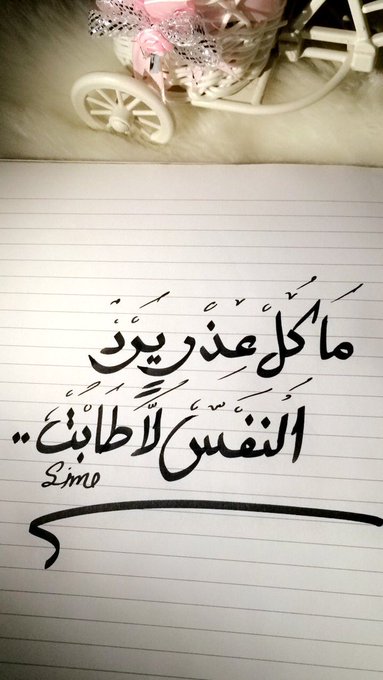 مَا كُلْ عِذْرٍ يَرِدْ
النَفْسْ لَا طَابْتْ ..
Sime